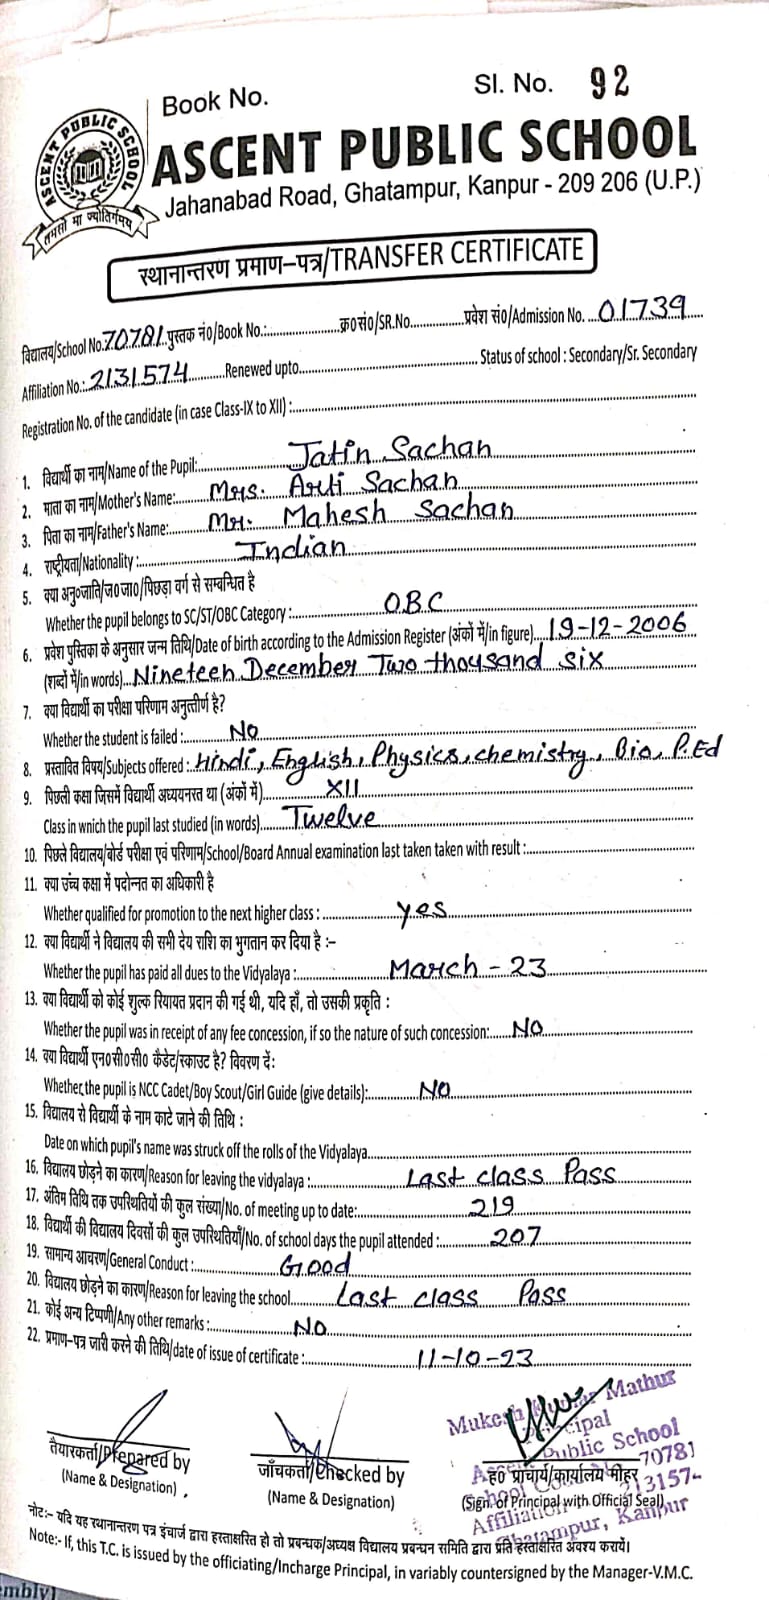 Book No.
Sl. No. 92
ASCENT PUBLIC SCHOOL
तमसो मा ज्योतिर्गमय
ASCENT PUBLIC SCHOOL
Jahanabad Road, Ghatampur, Kanpur - 209 206 (U.P.)
स्थानान्तरण प्रमाण-पत्र/TRANSFER CERTIFICATE
विद्यालय/School No. 70781 पुस्तक नं०/Book No.:............ क्र०सं०/SR.No............ प्रवेश सं०/Admission No. ...01739
Affiliation No.: 2131574 ............Renewed upto............ Status of school : Secondary/Sr. Secondary
Registration No. of the candidate (in case Class-IX to XII) :............
1. विद्यार्थी का नाम/Name of the Pupil:............ Jatin Sachan
2. माता का नाम/Mother's Name:............ Mrs. Arti Sachan
3. पिता का नाम/Father's Name:............ Mr. Mahesh Sachan
4. राष्ट्रीयता/Nationality :............ Indian
5. क्या अनु०जाति/ज०जा०/पिछड़ा वर्ग से सम्बन्धित है
Whether the pupil belongs to SC/ST/OBC Category :............ OBC
6. प्रवेश पुस्तिका के अनुसार जन्म तिथि/Date of birth according to the Admission Register (अंकों में/in figure)....19-12-2006
(शब्दों में/in words)...Nineteen December Two thousand six
7. क्या विद्यार्थी का परीक्षा परिणाम अनुत्तीर्ण है?
Whether the student is failed :............ No
8. प्रस्तावित विषय/Subjects offered : Hindi, English, Physics, chemistry, Bio, P.Ed
9. पिछली कक्षा जिसमें विद्यार्थी अध्ययनरत था (अंकों में)............ XII
Class in wnich the pupil last studied (in words)....Twelve
10. पिछले विद्यालय/बोर्ड परीक्षा एवं परिणाम/School/Board Annual examination last taken taken with result :............
11. क्या उच्च कक्षा में पदोन्नत का अधिकारी है
Whether qualified for promotion to the next higher class :............ yes
12. क्या विद्यार्थी ने विद्यालय की सभी देय राशि का भुगतान कर दिया है :-
Whether the pupil has paid all dues to the Vidyalaya :............ March - 23
13. क्या विद्यार्थी को कोई शुल्क रियायत प्रदान की गई थी, यदि हाँ, तो उसकी प्रकृति :
Whether the pupil was in receipt of any fee concession, if so the nature of such concession:......NO
14. क्या विद्यार्थी एन०सी०सी० कैडेट/स्काउट है? विवरण दें:
Whether, the pupil is NCC Cadet/Boy Scout/Girl Guide (give details):............ NO
15. विद्यालय से विद्यार्थी के नाम काटे जाने की तिथि :
Date on which pupil's name was struck off the rolls of the Vidyalaya............
16. विद्यालय छोड़ने का कारण/Reason for leaving the vidyalaya :............ Last class Pass
17. अंतिम तिथि तक उपस्थितियों की कुल संख्या/No. of meeting up to date:............ 219
18. विद्यार्थी की विद्यालय दिवसों की कुल उपस्थितियाँ/No. of school days the pupil attended :............ 207
19. सामान्य आचरण/General Conduct :............ Good
20. विद्यालय छोड़ने का कारण/Reason for leaving the school............ Last class Pass
21. कोई अन्य टिप्पणी/Any other remarks :............ NO
22. प्रमाण-पत्र जारी करने की तिथि/date of issue of certificate :............ 11-10-23
Mathur
Principal
Public School
70781
तैयारकर्ता/Prepared by
(Name & Designation)
जाँचकर्ता/Checked by
(Name & Designation)
ह० प्राचार्य/कार्यालय मोहर
(Sign. of Principal with Official Seal)
Affiliation
Ghatampur, Kanpur
नोट:- यदि यह स्थानान्तरण पत्र इंचार्ज द्वारा हस्ताक्षरित हो तो प्रबन्धक/अध्यक्ष विद्यालय प्रबन्धन समिति द्वारा प्रति हस्ताक्षरित अवश्य करायें।
Note:- If, this T.C. is issued by the officiating/Incharge Principal, in variably countersigned by the Manager-V.M.C.